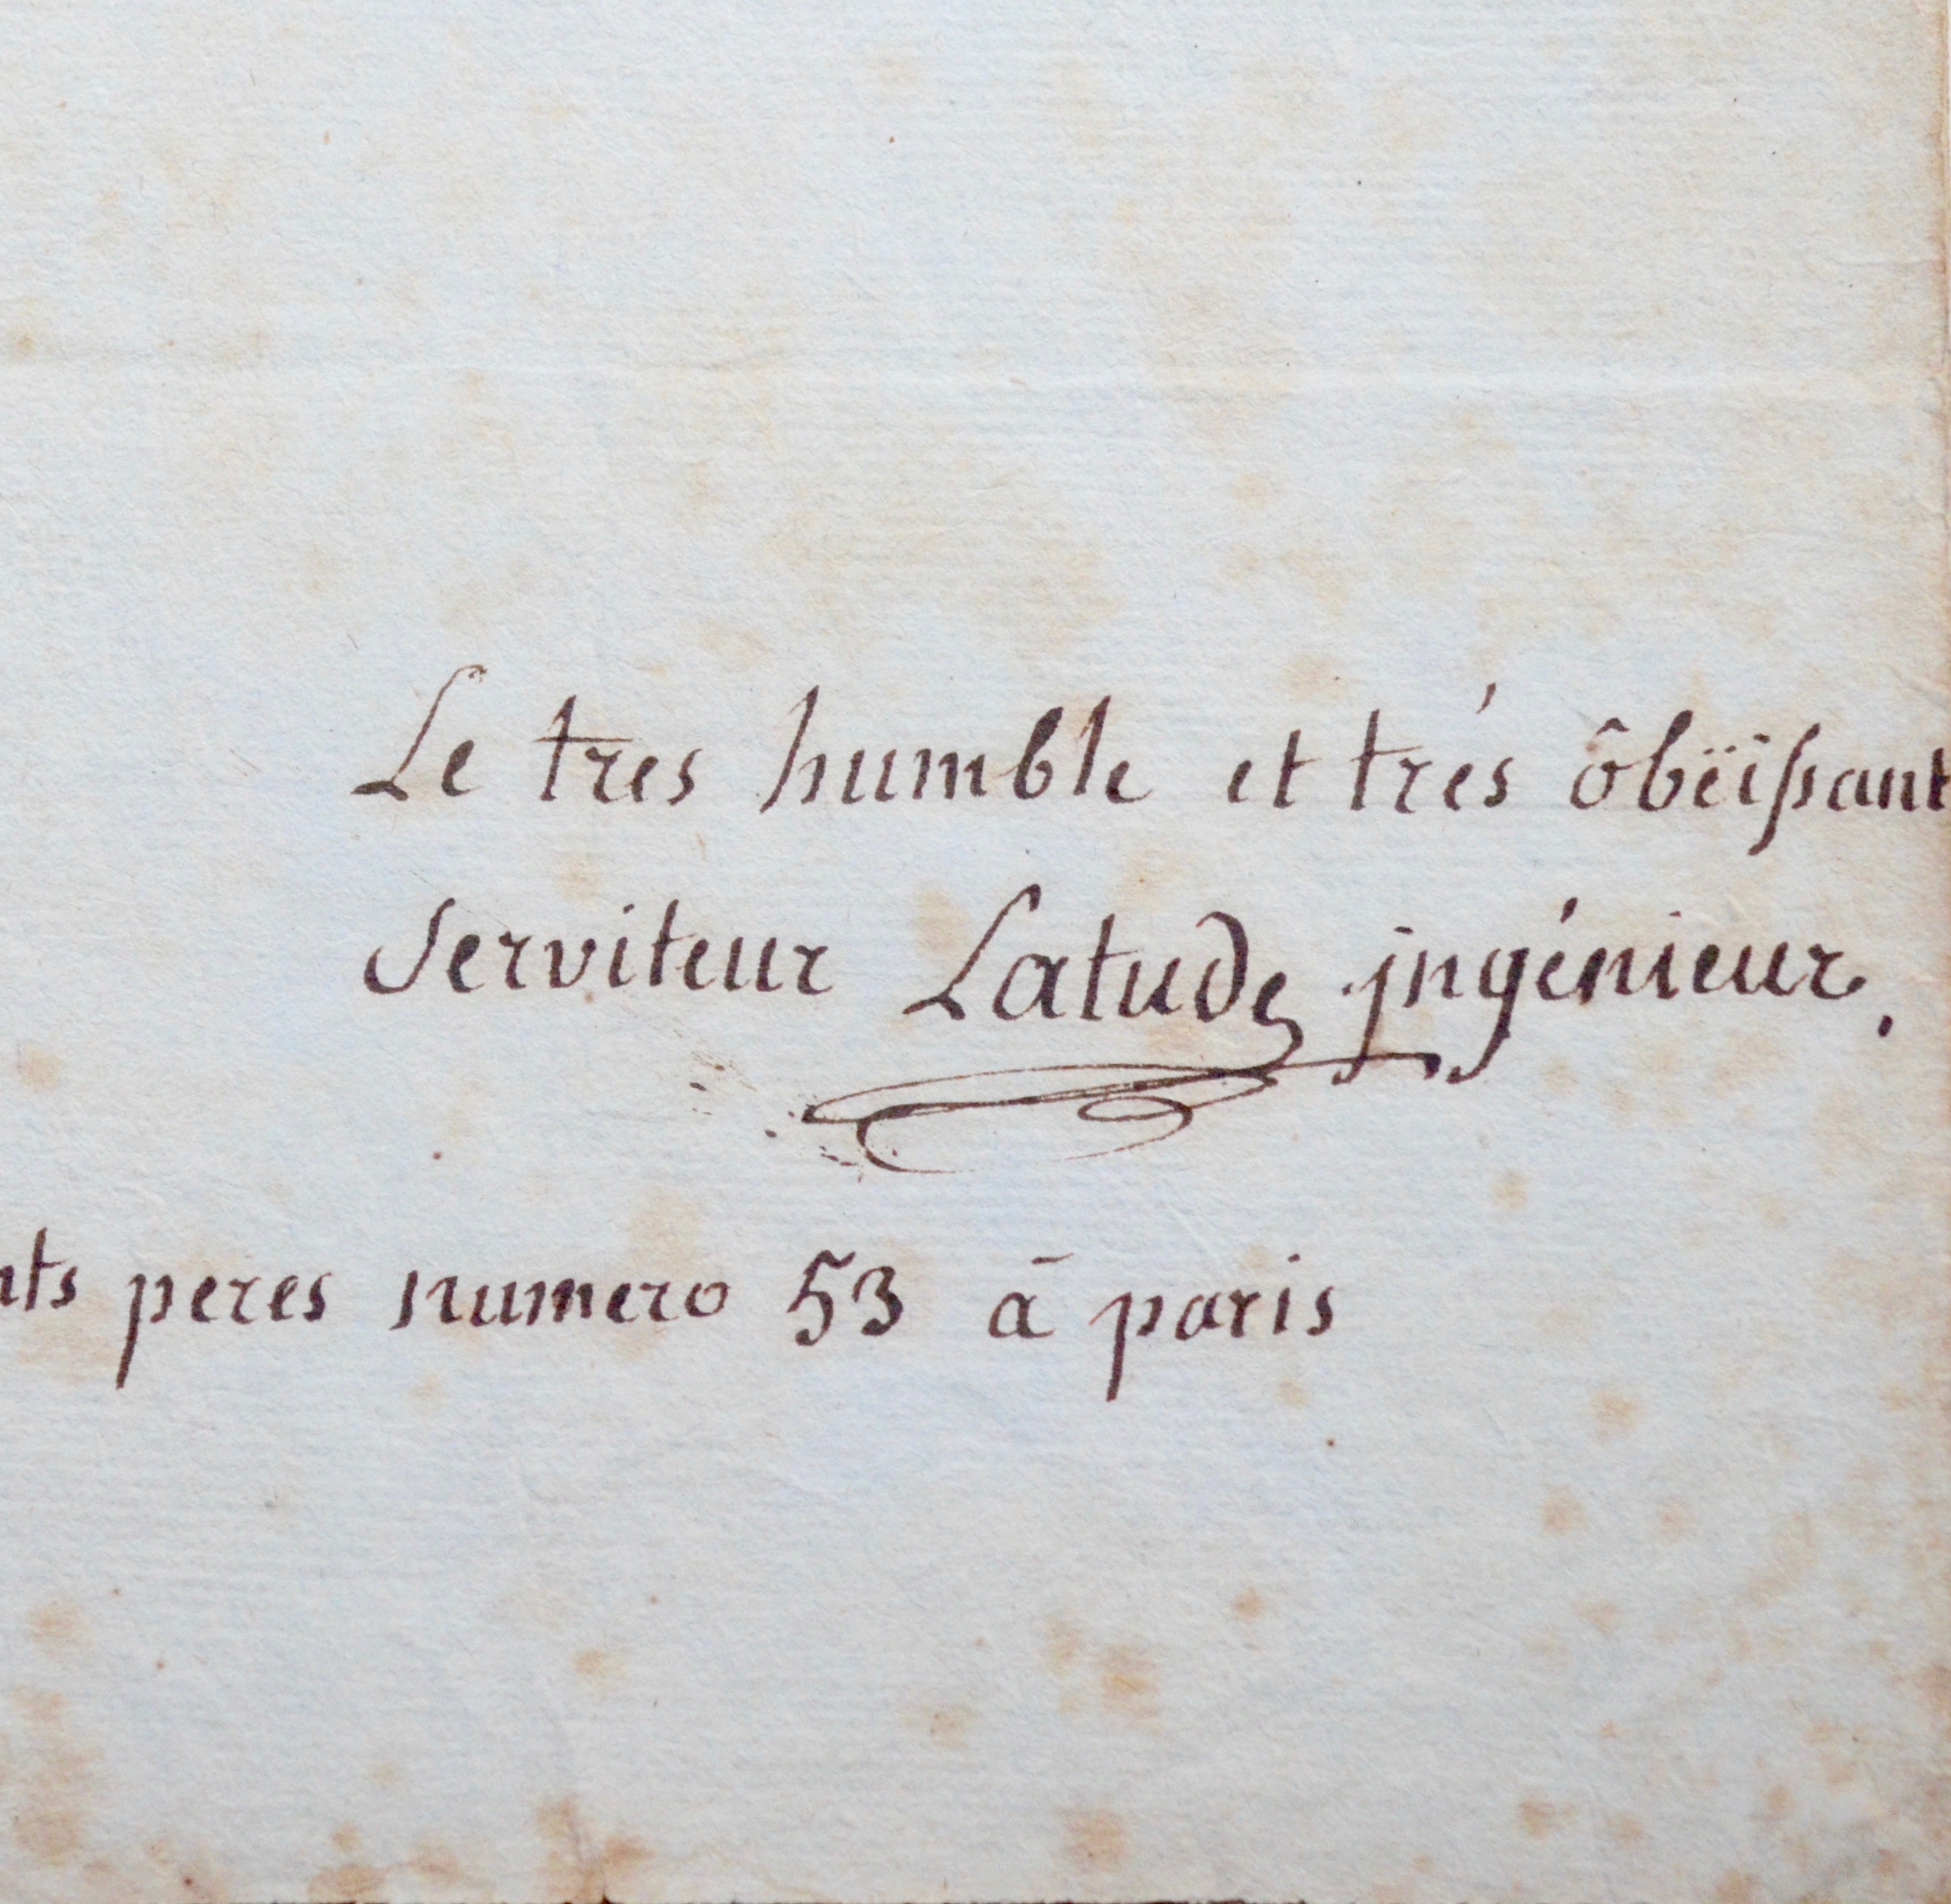 Le tres humble et trés ôbëißant
Serviteur Latude ingénieur.
nts peres numero 53 ā paris